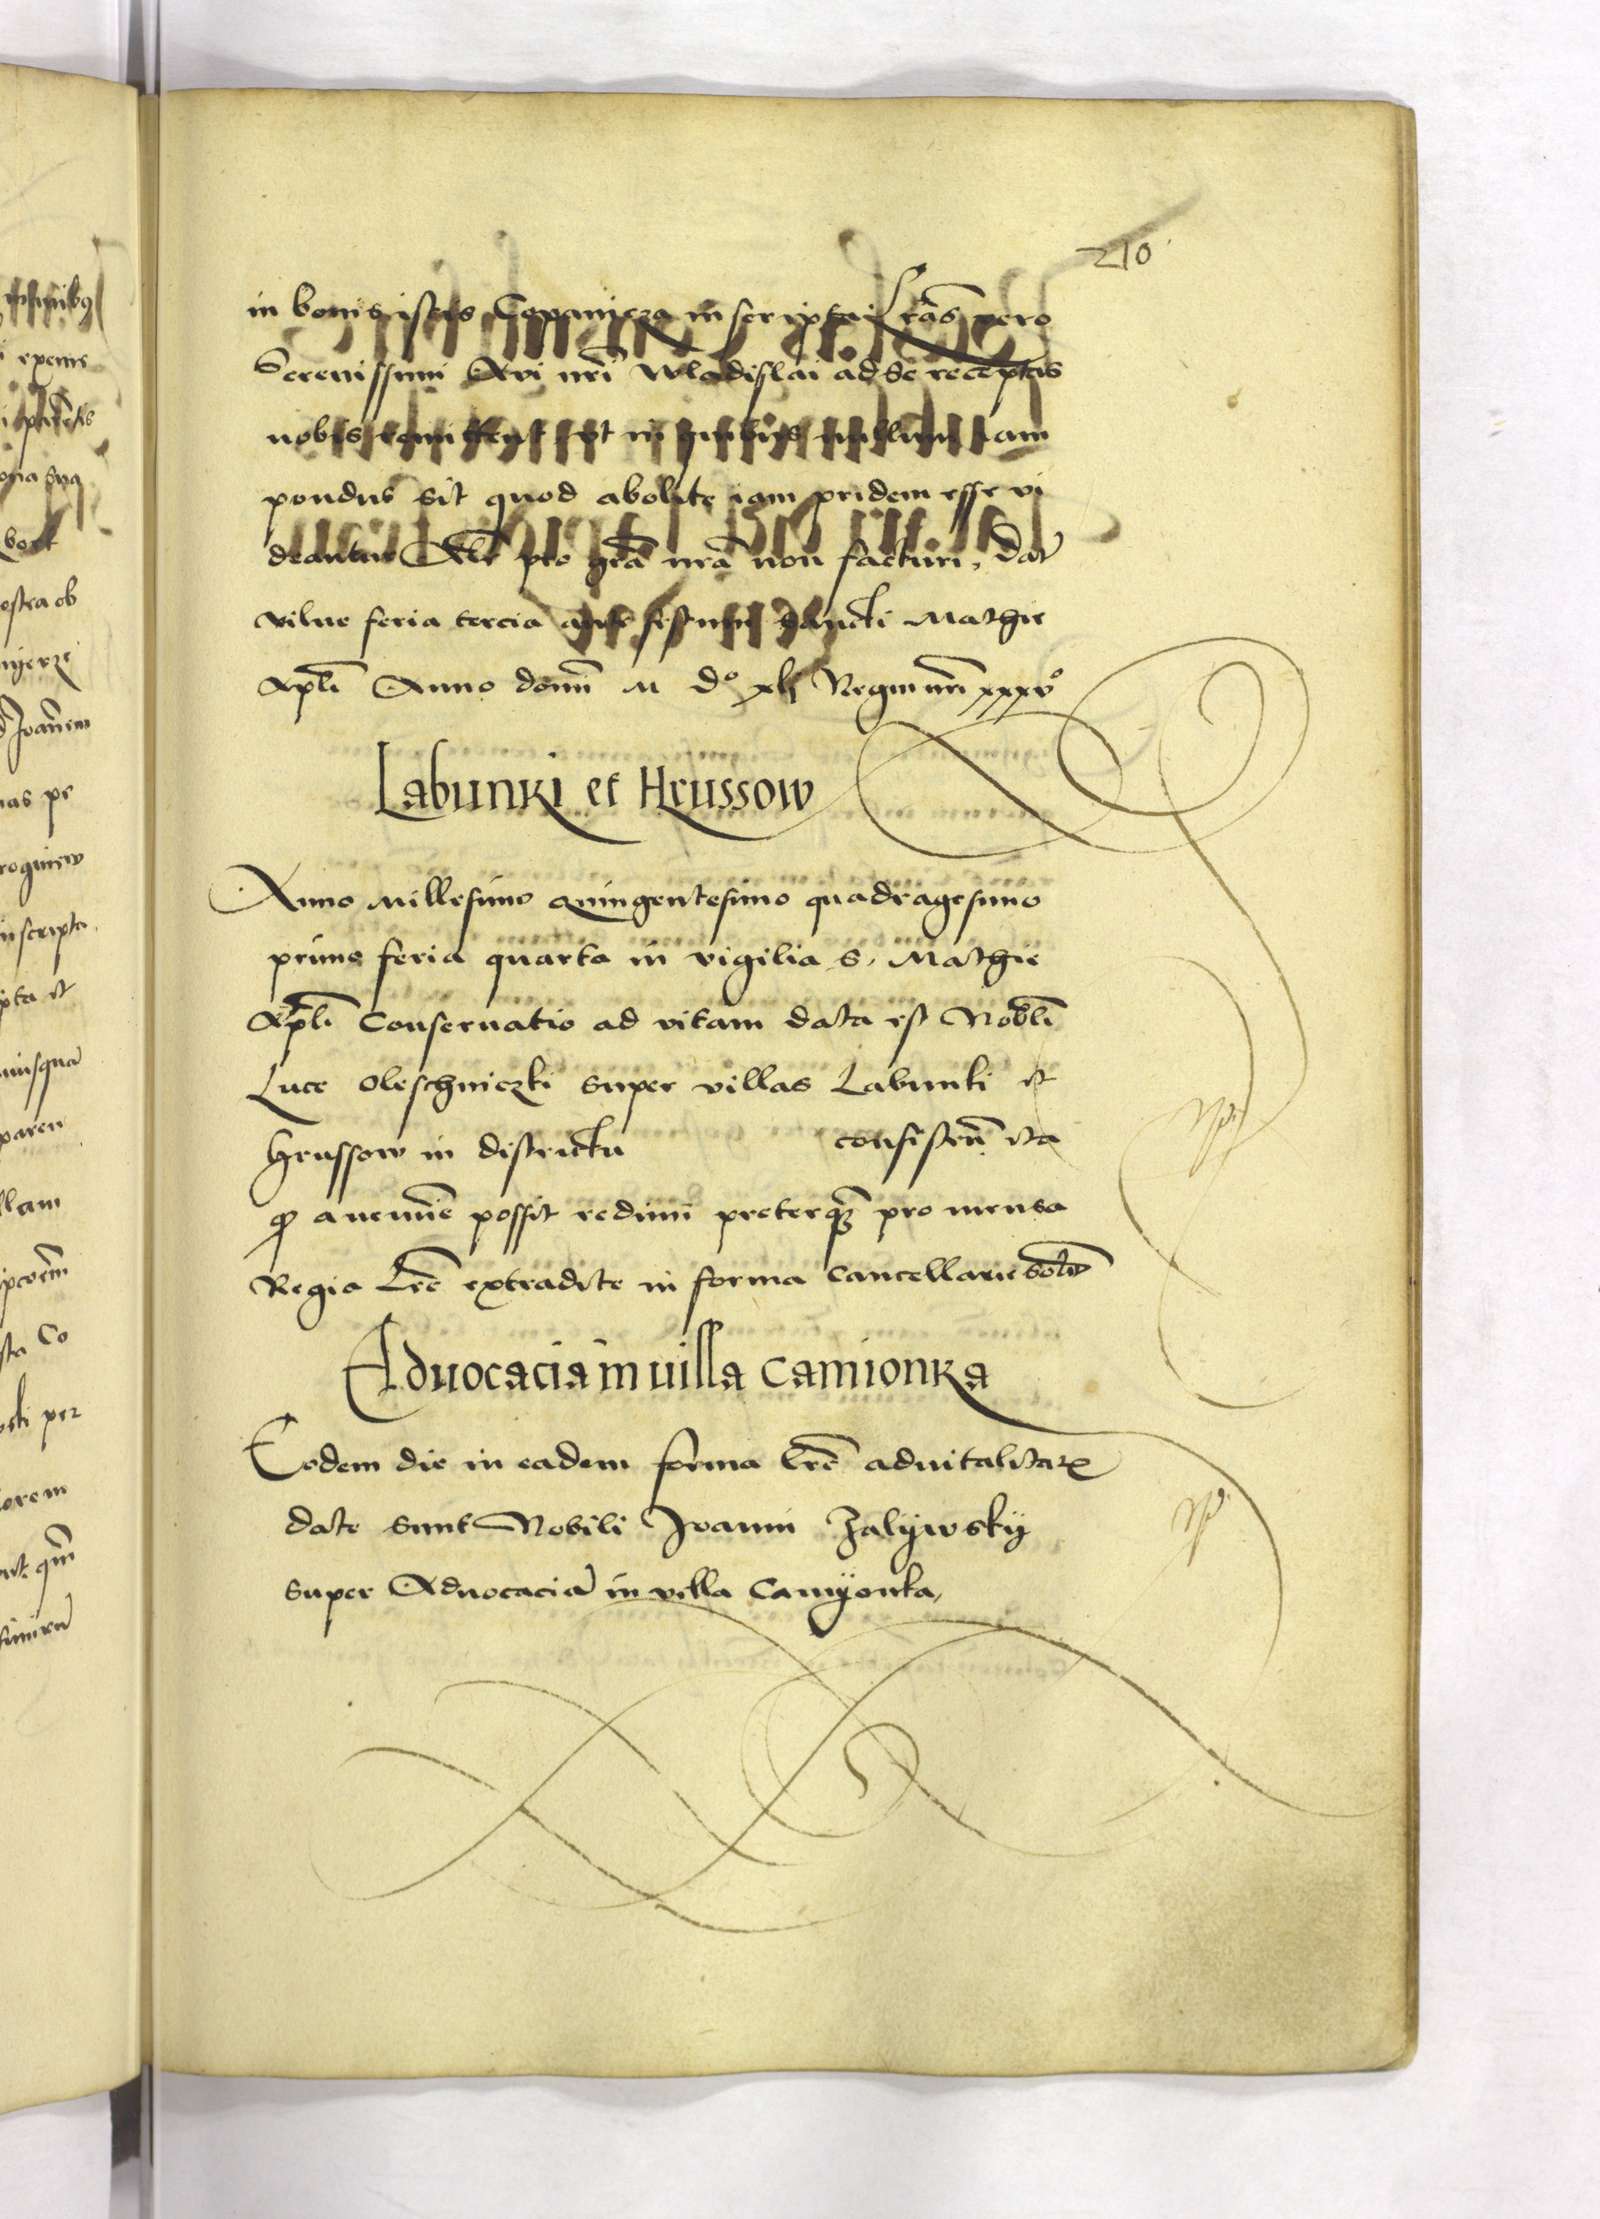 210
in bonis istis Copanicza inscriptas Lr̃as vero
Serenissimi Avi nr̃i Wladislai ad se receptas
nobis remittent ut in quibus nullum iam
pondus sit quod abolite iam pridem esse vi
deantur Alr̃ pro gr̃a nr̃a non facturi, Dat̃
Vilne feria tercia ante festum sancti Mathie
Apl̃i Anno domĩ M d° xlj Regni nr̃i xxxv°
Labunki et Hrussow
Anno Millesimo Quingentesimo quadragesimo
primo feria quarta in vigilia S. Mathie
Apl̃i Conservatio ad vitam data est Nobl̃i
Luce Oleschniczki super villas Labunki et
Hrussow in districtu consisteñ ita
q̃ a nemĩe possit redimi preterq̃ pro mensa
Regia Lr̃e extradite in forma Cancellarie solit̃
Advocacia in villa Camionka
Eodem die in eadem forma lr̃e advitalitat̃
date sunt Nobili Joanni Zalijwskij
super Advocaciã in villa Camÿonka,